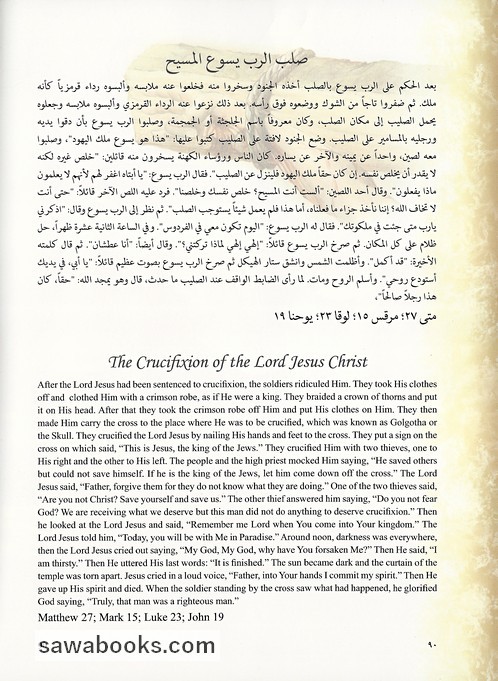 صلب الرب يسوع المسيح
بعد الحكم على الرب يسوع بالصلب أخذه الجنود وسخروا منه فخلعوا عنه ملابسه وألبسوه رداء قرمزياً كأنه
ملك. ثم ضفروا تاجاً من الشوك ووضعوه فوق رأسه. بعد ذلك نزعوا عنه الرداء القرمزي وألبسوه ملابسه وجعلوه
يحمل الصليب إلى مكان الصلب، وكان معروفاً باسم الجلجثة أو الجمجمة، وصلبوا الرب يسوع بأن دقوا يديه
ورجليه بالمسامير على الصليب. وضع الجنود لافتة على الصليب كتبوا عليها: "هذا هو يسوع ملك اليهود"، وصلبوا
معه لصين، واحداً عن يمينه والآخر عن يساره. كان الناس ورؤساء الكهنة يسخرون منه قائلين: "خلص غيره لكنه
لا يقدر أن يخلص نفسه. إن كان حقاً ملك اليهود فلينزل عن الصليب". فقال الرب يسوع: "يا أبتاه اغفر لهم لأنهم لا يعلمون
ماذا يفعلون". وقال أحد اللصين: "ألست أنت المسيح؟ خلص نفسك وخلصنا". فرد عليه اللص الآخر قائلاً: "حتى أنت
لا تخاف الله؟ إننا نأخذ جزاء ما فعلناه، أما هذا فلم يعمل شيئاً يستوجب الصلب". ثم نظر إلى الرب يسوع وقال: "اذكرني
يارب متى جئت في ملكوتك". فقال له الرب يسوع: "اليوم تكون معي في الفردوس". وفي الساعة الثانية عشرة ظهراً، حل
ظلام على كل المكان. ثم صرخ الرب يسوع قائلاً: "إلهي إلهي لماذا تركتني؟". وقال أيضاً: "أنا عطشان". ثم قال كلمته
الأخيرة: "قد أكمل". وأظلمت الشمس وانشق ستار الهيكل ثم صرخ الرب يسوع بصوت عظيم قائلاً: "يا أبي، في يديك
أستودع روحي". وأسلم الروح ومات. لما رأى الضابط الواقف عند الصليب ما حدث، قال وهو يمجد الله: "حقاً، كان
هذا رجلاً صالحاً"،
متى ٢٧؛ مرقس ١٥؛ لوقا ٢٣؛ يوحنا ١٩
The Crucifixion of the Lord Jesus Christ
After the Lord Jesus had been sentenced to crucifixion, the soldiers ridiculed Him. They took His clothes
off and clothed Him with a crimson robe, as if He were a king. They braided a crown of thorns and put
it on His head. After that they took the crimson robe off Him and put His clothes on Him. They then
made Him carry the cross to the place where He was to be crucified, which was known as Golgotha or
the Skull. They crucified the Lord Jesus by nailing His hands and feet to the cross. They put a sign on the
cross on which said, “This is Jesus, the king of the Jews.” They crucified Him with two thieves, one to
His right and the other to His left. The people and the high priest mocked Him saying, “He saved others
but could not save himself. If he is the king of the Jews, let him come down off the cross.” The Lord
Jesus said, “Father, forgive them for they do not know what they are doing.” One of the two thieves said,
“Are you not Christ? Save yourself and save us.” The other thief answered him saying, “Do you not fear
God? We are receiving what we deserve but this man did not do anything to deserve crucifixion.” Then
he looked at the Lord Jesus and said, “Remember me Lord when You come into Your kingdom.” The
Lord Jesus told him, “Today, you will be with Me in Paradise.” Around noon, darkness was everywhere,
then the Lord Jesus cried out saying, “My God, My God, why have You forsaken Me?” Then He said, “I
am thirsty.” Then He uttered His last words: “It is finished.” The sun became dark and the curtain of the
temple was torn apart. Jesus cried in a loud voice, “Father, into Your hands I commit my spirit.” Then He
gave up His spirit and died. When the soldier standing by the cross saw what had happened, he glorified
God saying, “Truly, that man was a righteous man.”
Matthew 27; Mark 15; Luke 23; John 19
sawabooks.com
٩٠